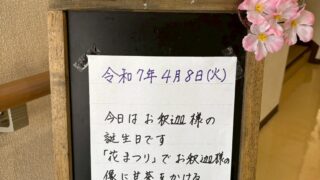 令和7年4月8日(火)
今日はお釈迦様の
誕生日です
「花まつり」でお釈迦様の
像に甘茶をかける